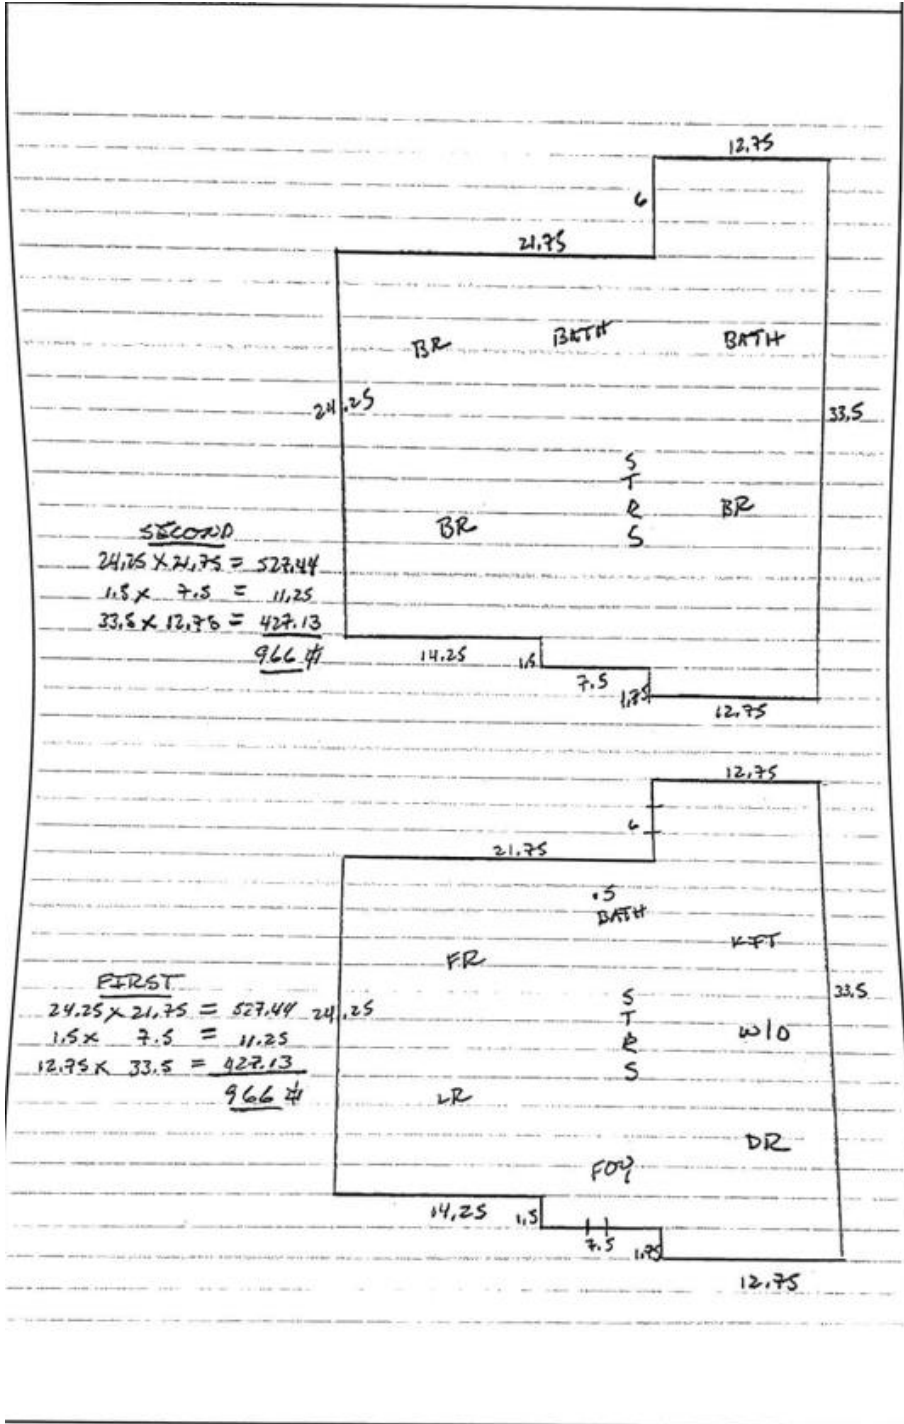 12.75
6
21.75
BR BATH BATH
24.25 33.5
S
T
R
S
BR BR
SECOND
24.25 × 21.75 = 527.44
1.5 × 7.5 = 11.25
33.5 × 12.75 = 427.13
966 #
14.25 1.5
7.5 1.75
12.75
12.75
6
21.75
.5
BATH
FR KIT
FIRST
24.25 × 21.75 = 527.44 24.25 33.5
1.5 × 7.5 = 11.25
12.75 × 33.5 = 427.13
966 #
S
T
R
S
W/D
LR
DR
FOY
14.25 1.5
7.5 1.75
12.75